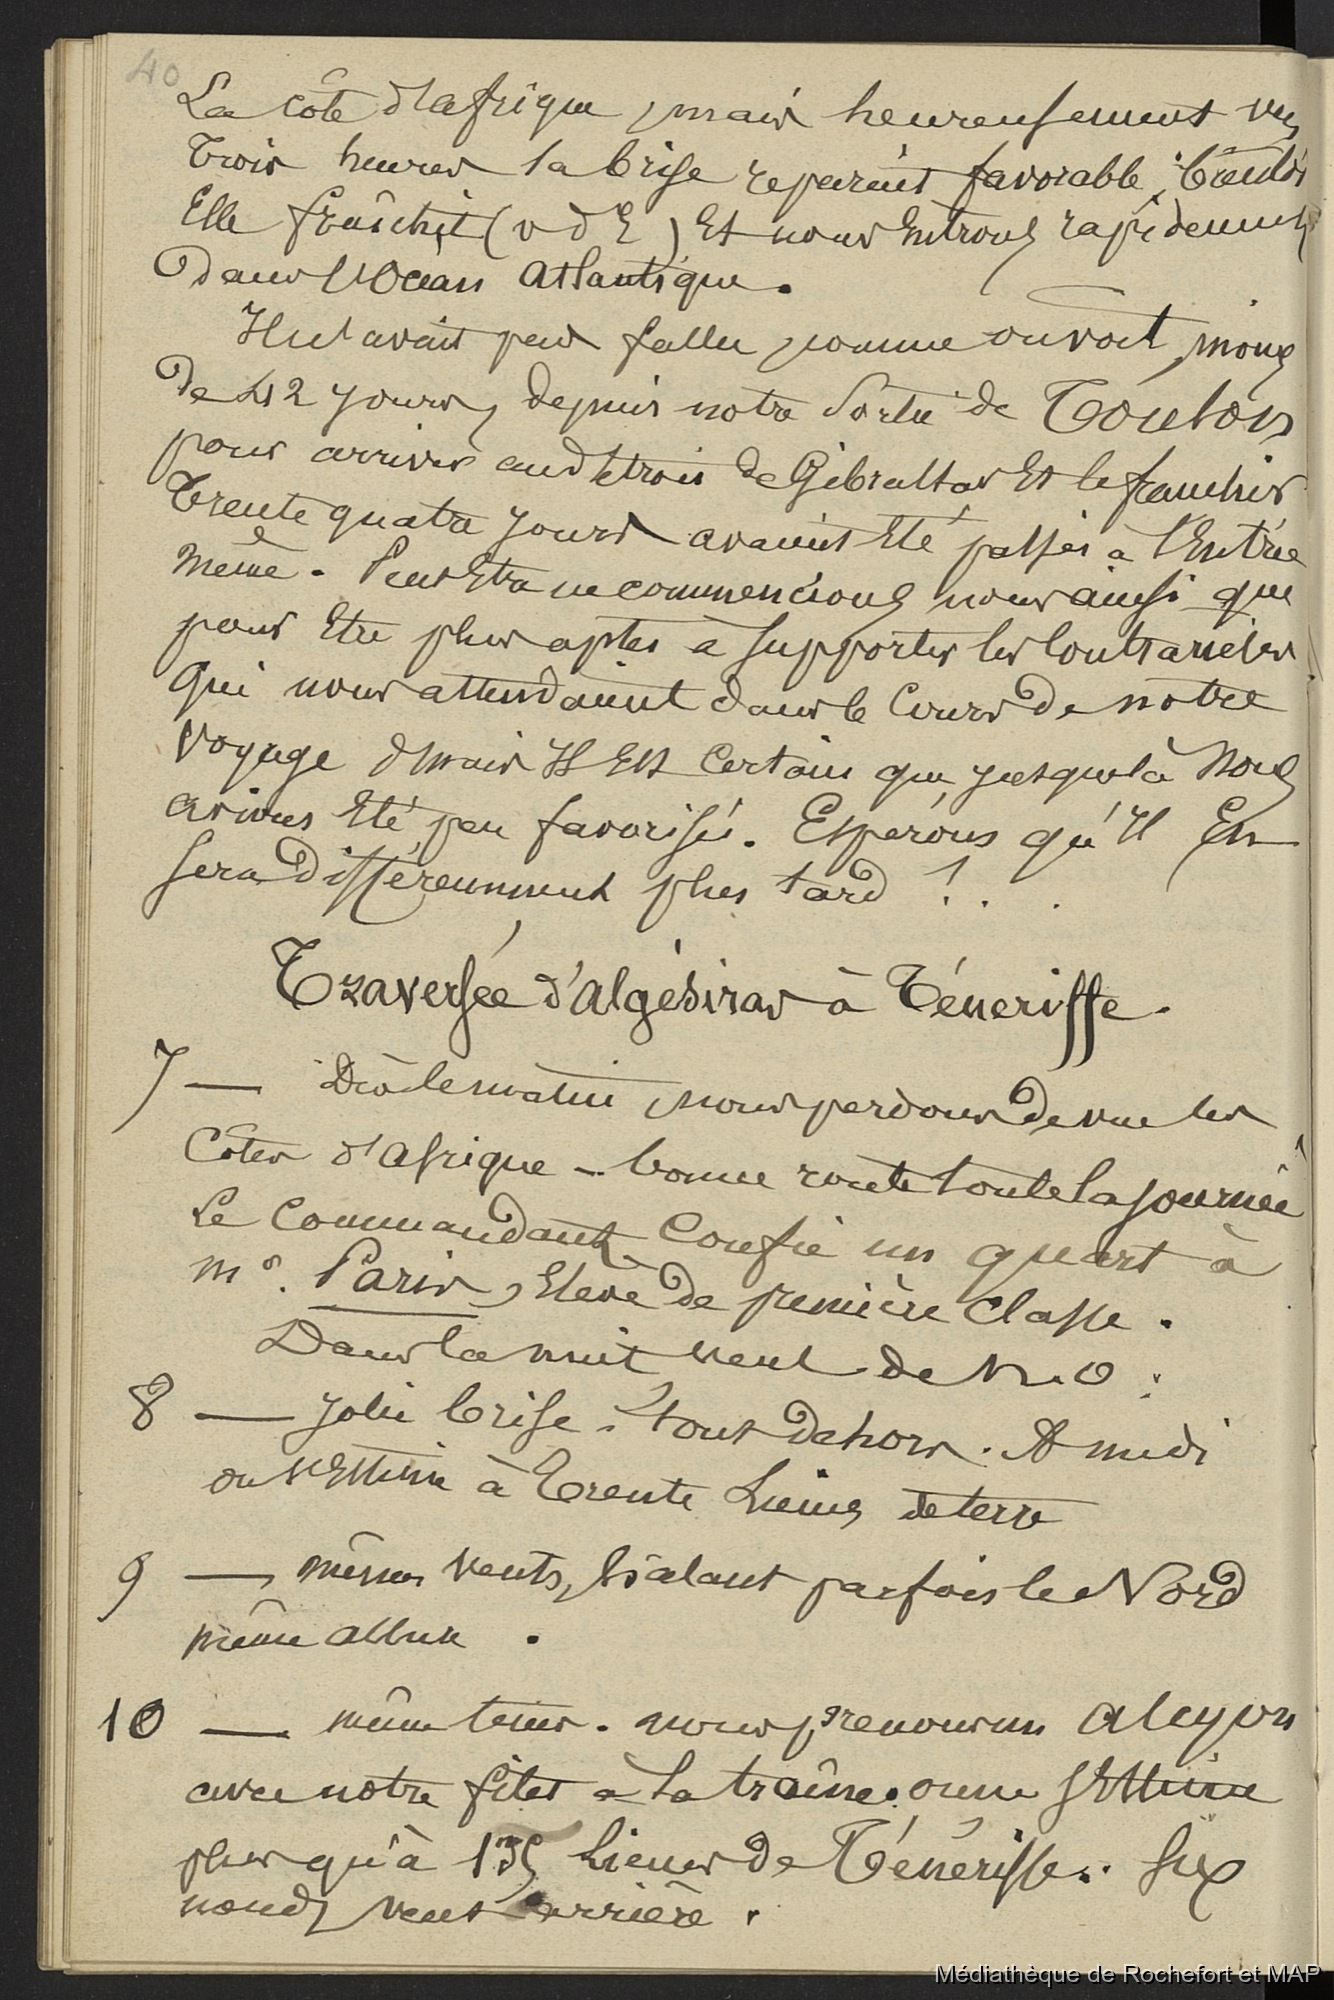 40
La côte d'afrique, mais heureusement vers
Trois heures la brise reparait favorable, bientôt
Elle fraîchit (v d E) Et nous Entrons rapidement
dans l'Océan atlantique.
Il n'avait pas fallu, comme on voit, moins
de 42 jours, depuis notre Sortie de Toulon
pour arriver au détroit de Gibraltar Et le franchir
Trente quatre jours avaient Eté passés à l'Entrée
même. Peut Etre ne commencions nous ainsi que
pour Etre plus aptes à supporter les Contrariétés
qui nous attendaient dans le Cours de notre
voyage, mais Il Est Certain que jusque là Nous
avions Eté peu favorisés. Espérons qu'Il En
sera différemment plus tard !..
Traversée d'algésiras à Téneriffe.
7 — Dès le matin, nous perdons de vue les
Côtes d'afrique - bonne route toute la journée
Le Commandant Confie un quart à
mr. Paris, Elève de première Classe.
Dans la nuit vent de N.O.
8 — Jolie brise. tout dehors. A midi
on s'Estime à Trente Lieues de terre
9 — mêmes vents, hâlant parfois le Nord
même allure.
10 — même tems. nous prenons un alcyon
avec notre filet à la traîne. on ne s'Estime
plus qu'à 135 Lieues de Ténériffe. Six
nœuds vent arrière.
Médiathèque de Rochefort et MAP